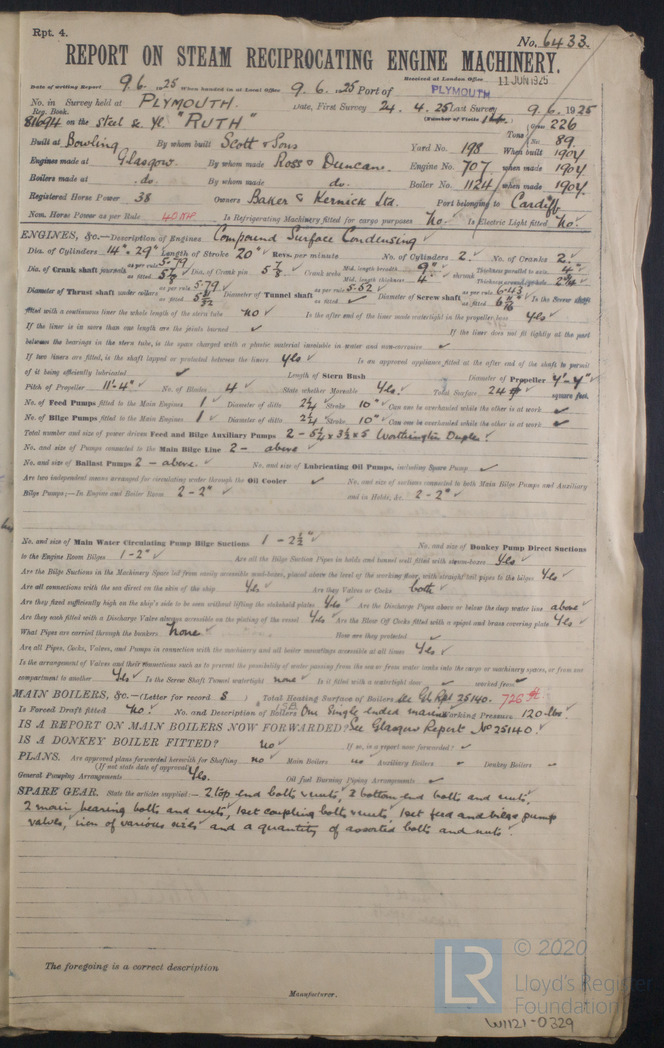 Rpt. 4.
No. 6433.
REPORT ON STEAM RECIPROCATING ENGINE MACHINERY.
Received at London Office 11 JUN 1925
Date of writing Report 9.6.1925 When handed in at Local Office 9.6.1925 Port of PLYMOUTH
No. in Survey held at PLYMOUTH. Date, First Survey 24.4.25 Last Survey 9.6.1925
Reg. Book. (Number of Visits 14.)
81694 on the Steel Sc. "RUTH" Tons Gross 226 Net 89.
Built at Bowling By whom built Scott & Sons Yard No. 198 When built 1904
Engines made at Glasgow By whom made Ross & Duncan. Engine No. 707 when made 1904
Boilers made at do. By whom made do. Boiler No. 1124 when made 1904.
Registered Horse Power 38 Owners Baker & Kernick Ltd. Port belonging to Cardiff
Nom. Horse Power as per Rule 40 Is Refrigerating Machinery fitted for cargo purposes No. Is Electric Light fitted No.
ENGINES, &c.—Description of Engines Compound Surface Condensing
Dia. of Cylinders 14" & 29" Length of Stroke 20" Revs. per minute No. of Cylinders 2. No. of Cranks 2.
Dia. of Crank shaft journals as per rule 5.79 as fitted 5 7/8 Dia. of Crank pin 5 7/8 Crank webs Mid. length breadth 9" Mid. length thickness 4" shrunk Thickness parallel to axis 4"
Diameter of Thrust shaft under collars as per rule 5.79 as fitted Diameter of Tunnel shaft as per rule 5.52 as fitted Diameter of Screw shaft as per rule 6.43 as fitted Is the Screw shaft
fitted with a continuous liner the whole length of the stern tube no Is the after end of the liner made watertight in the propeller boss yes
If the liner is in more than one length are the joints burned If the liner does not fit tightly at the part
between the bearings in the stern tube, is the space charged with a plastic material insoluble in water and non-corrosive
If two liners are fitted, is the shaft lapped or protected between the liners yes Is an approved appliance fitted at the after end of the shaft to permit
of it being efficiently lubricated Length of Stern Bush Diameter of Propeller
Pitch of Propeller 11'-4" No. of Blades 4 State whether Moveable Yes. Total Surface 24 square feet.
No. of Feed Pumps fitted to the Main Engines 1 Diameter of ditto 2 1/4 Stroke 10" Can one be overhauled while the other is at work
No. of Bilge Pumps fitted to the Main Engines 1 Diameter of ditto 2 1/4 Stroke 10" Can one be overhauled while the other is at work
Total number and size of power driven Feed and Bilge Auxiliary Pumps 2 - 5 1/4 x 3 1/2 x 5 Worthington Duplex
No. and size of Pumps connected to the Main Bilge Line 2 - above
No. and size of Ballast Pumps 2 - above. No. and size of Lubricating Oil Pumps, including Spare Pump
Are two independent means arranged for circulating water through the Oil Cooler No. and size of suctions connected to both Main Bilge Pumps and Auxiliary
Bilge Pumps;—In Engine and Boiler Room 2 - 2" and in Holds, &c. 2 - 2"
No. and size of Main Water Circulating Pump Bilge Suctions 1 - 2 1/2" No. and size of Donkey Pump Direct Suctions
to the Engine Room Bilges 1 - 2" Are all the Bilge Suction Pipes in holds and tunnel well fitted with strum-boxes Yes
Are the Bilge Suctions in the Machinery Space led from easily accessible mud-boxes, placed above the level of the working floor, with straight tail pipes to the bilges Yes
Are all connections with the sea direct on the skin of the ship Yes Are they Valves or Cocks both
Are they fixed sufficiently high on the ship's side to be seen without lifting the stokehold plates Yes Are the Discharge Pipes above or below the deep water line above
Are they each fitted with a Discharge Valve always accessible on the plating of the vessel Yes Are the Blow Off Cocks fitted with a spigot and brass covering plate Yes
What Pipes are carried through the bunkers None How are they protected
Are all Pipes, Cocks, Valves, and Pumps in connection with the machinery and all boiler mountings accessible at all times Yes
Is the arrangement of Valves and their connections such as to prevent the possibility of water passing from the sea or from water tanks into the cargo or machinery spaces, or from one
compartment to another Yes Is the Screw Shaft Tunnel watertight none Is it fitted with a watertight door worked from
MAIN BOILERS, &c.—(Letter for record S) Total Heating Surface of Boilers See Gls Rpt 25140. 726
Is Forced Draft fitted No. No. and Description of Boilers One Single ended marine Working Pressure 120 lbs.
IS A REPORT ON MAIN BOILERS NOW FORWARDED? See Glasgow Report No 25140.
IS A DONKEY BOILER FITTED? No If so, is a report now forwarded?
PLANS. Are approved plans forwarded herewith for Shafting no Main Boilers no Auxiliary Boilers Donkey Boilers
(If not state date of approval)
General Pumping Arrangements Yes. Oil fuel Burning Piping Arrangements
SPARE GEAR. State the articles supplied:— 2 top end bolts & nuts, 2 bottom end bolts and nuts,
2 main bearing bolts and nuts, 1 set coupling bolts & nuts, 1 set feed and bilge pump
valves, iron of various sizes and a quantity of assorted bolts and nuts.
The foregoing is a correct description
Manufacturer.
LR © 2020
Lloyd's Register
Foundation
W1121-0329